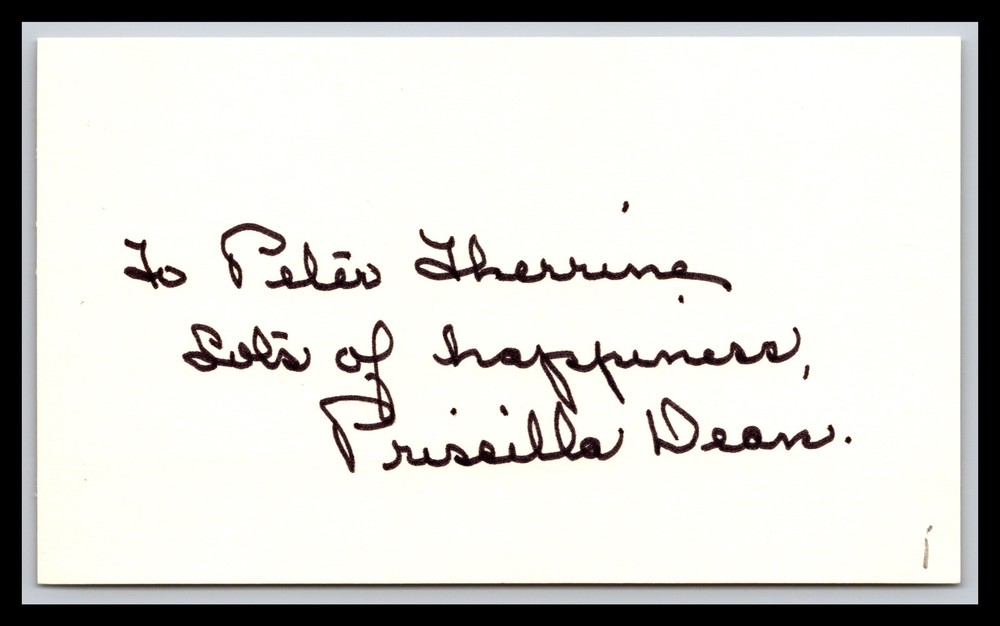 To Peter Therrine
Lots of happiness,
Priscilla Dean.